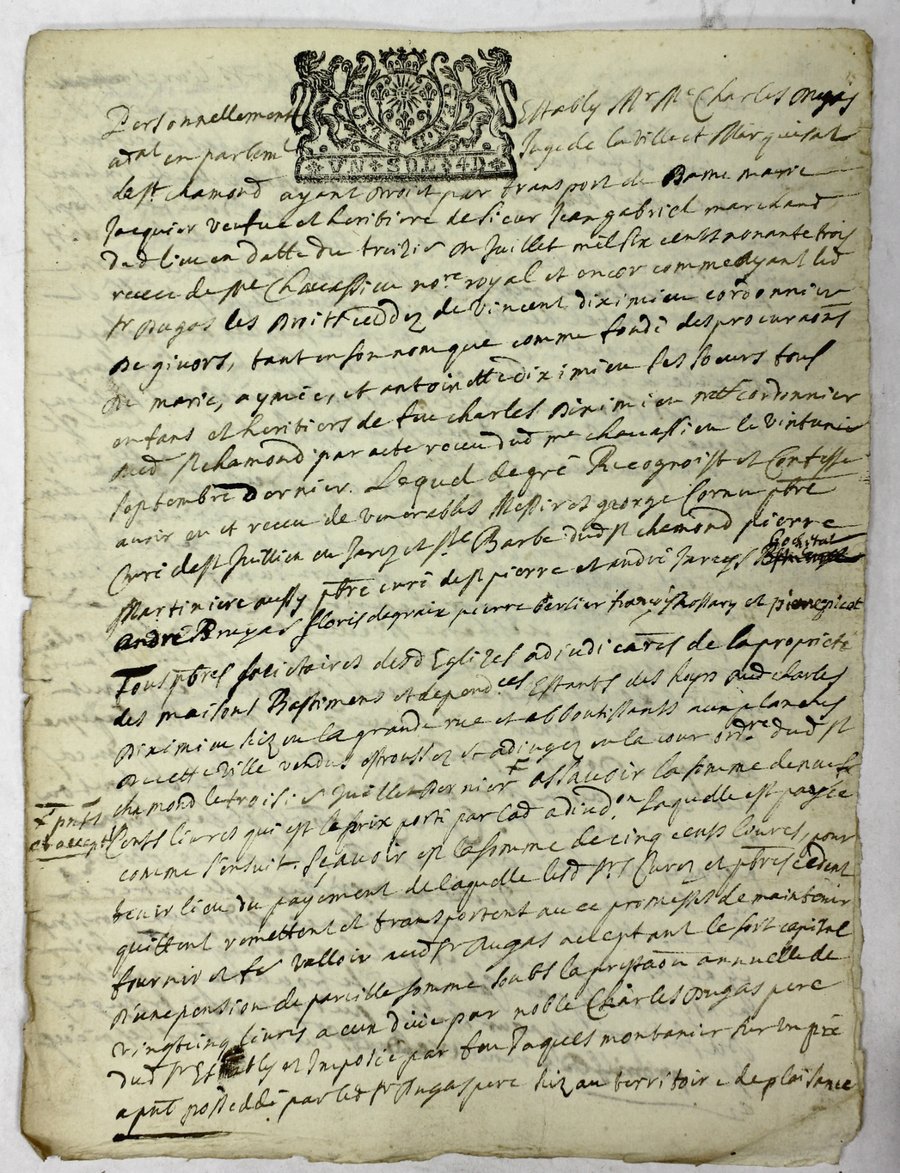 LYON GEN
UN SOL 4D
Personnellement Estably Mr Me Charles Dugas
aɖat en parlemt Juge de la ville et Marquisat
de st chamond ayant Droit par transport de Dame marie
Jacquier veufue et heritiere de sieur Jean gabriel marchand
dud lieu en datte du treizie de Juillet mil six cents nonante trois
receu de me Chavassieu nore royal et encor comme ayant led
sr Dugas les Droits ceddez de vincent diximieu cordonnier
De givors, tant en son nom que comme fondé des procuraons
De marie, aymée, et antoinette diximieu ses soeurs tous
enfans et heritiers de feu charles Diximieu cordonnier
dud st chamond par acte receu dud me chavassieu le vintunie
septembre dernier. Lequel de gré Recognoist et Confesse
auoir eu et receu de venerables Messires george Cornu pbre
Curé de st Jullien en Jarez et ste Barbe dud st chamond pierre
Martiniere aussy pbre curé de st pierre et andré Jareys
André Bruyas floris degraix pierre berlier françois et pierre picot
Tous pbres societaires desd Eglizes adiudicares de la proprieté
des maisons Bastimens et dependces Estants des hoyrs dud charles
Diximieu siz en la grande rue et abboutissants aux planches
De cette ville vendus et adiugez en la cour ordre dud st
chamond le troisie Juillet dernier assauoir la somme de neuf
Cents liures qui est le prix porté par lad adiudon Laquelle est payée
comme s'ensuit. sçauoir est la somme de cinq cents liures, pour
tenir lieu du payement de laquelle lesd srs Curez et pbres cedent
quittent remettent et transportent auec promesses de maintenir
fournir et fe valloir aud sr Dugas acceptant le sort capital
D'une pension de pareille somme soubs la prestaon annuelle de
vingtcinq liures par noble Charles Dugas pere
dud sr Estably et Imposée par feu Jaques montanier sur un pré
apnt possedé par led sr Dugas pere siz au territoire de plaisance
pnts
et accept